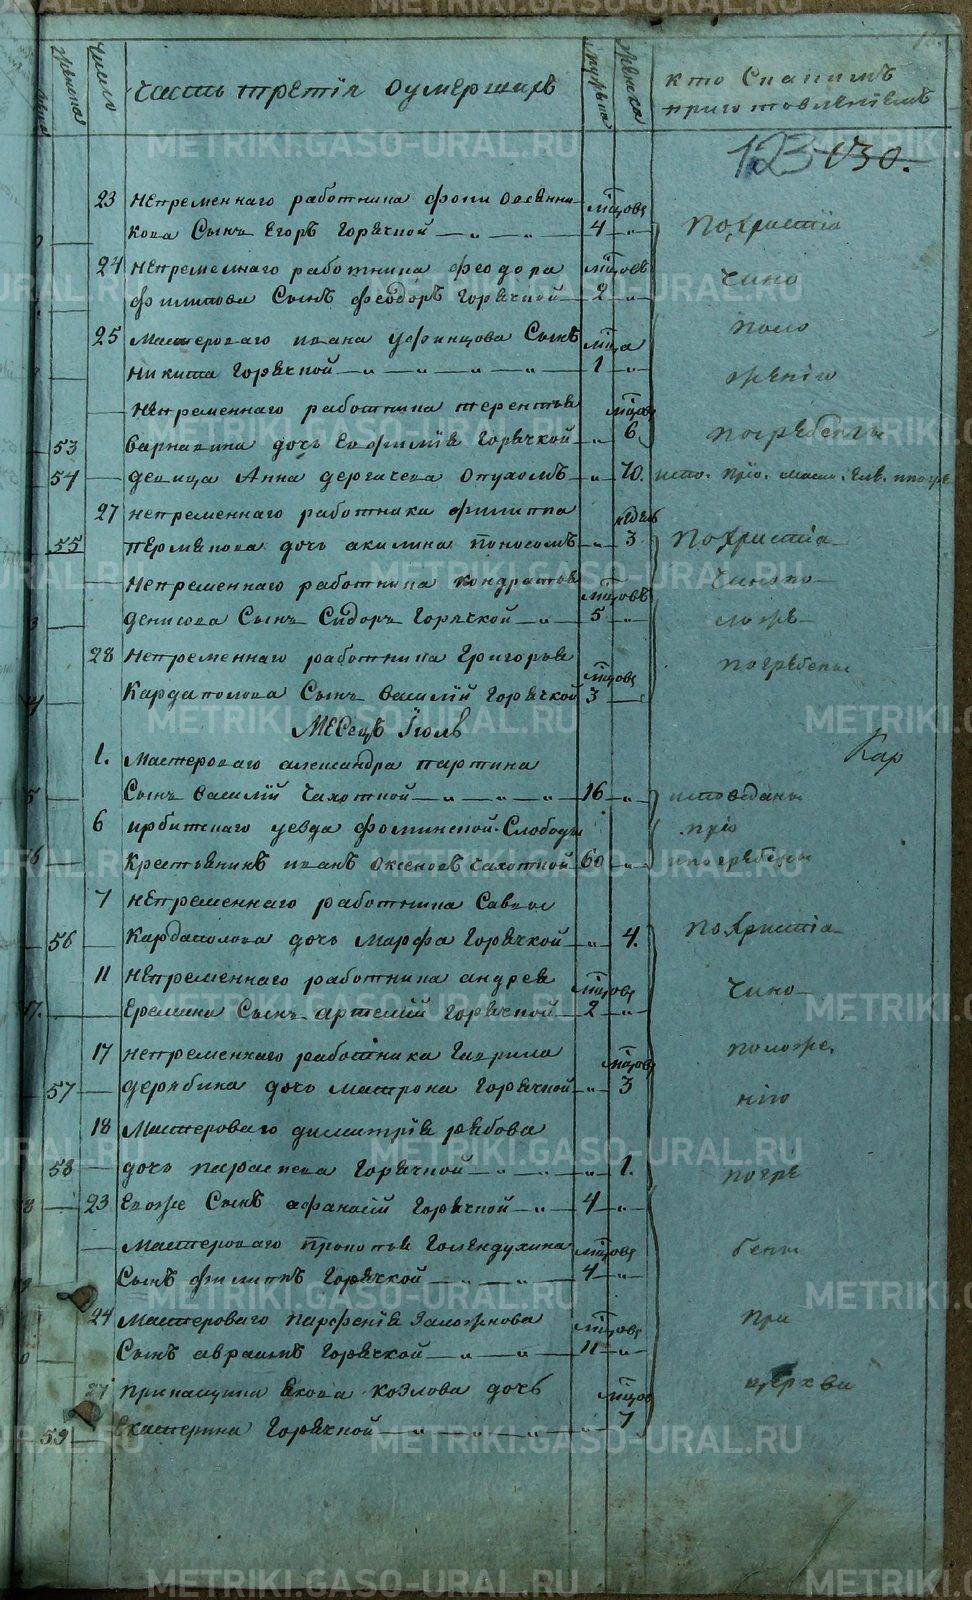 числo
часть третїя оумершихъ
кто С какимъ
приготовленїемъ
123 130.
23 непременнаго работника фоки Овсянни- мцовъ
кова Сынъ Егоръ Горячкой 4 По христїа
24 непременнаго работника феодора мцовъ чино
филипова Сынъ феодоръ Горячкой 2
25 Мастероваго ивана уфинцова Сынъ мца поло
никита Горячкой 1 женїю
непременнаго работника терентья мцовъ
53 варнавина дочь Евфимїя Горячкой 6 погребены
54 девица Анна дергачева Опухолъ 70.
27 непременнаго работника филиппа недель
55 пермякова дочь акилина поносомъ 3 По христїа
непременнаго работника кондратья мцовъ чинопо
денисова Сынъ Сидоръ Горячкой 5 ложе
28 непременнаго работника Григорья мцовъ погребены
Кардаполова Сынъ василїй Горячкой 3
месецъ Їюль
1. Мастероваго александра партина Кар
Сынъ василїй Чахоткой 16 исповеданы
6 ирбитскаго уезда фоминской Слободы прїо
Крестьянинъ иванъ Оксеновъ чахоткой 60 ипогребены
7 непременнаго работника Саввы
56 Кардаполова дочь Марфа Горячкой 4. По христїа
11 непременнаго работника андрея мцовъ
Еремина Сынъ артемїй Горячкой 2 чино
17 непременнаго работника Гаврила мцовъ положе
57 дерябина дочь матрона Горячкой 3 нїю
18 Мастероваго димитрїя рябова
58 дочь параскева Горячкой 1. погре
23 Евоже Сынъ афанасїй Горячкой 4
Мастероваго Прокопья Голендухина мцовъ бены
Сынъ филипъ Горячкой 4
24 Мастероваго парфенїя Заложнова мцовъ при
Сынъ авраамъ Горячкой 11
27 Припащика якова козлова дочь мцов церкви
59 Екатерина Горячкой 7
METRIKI.GASO-URAL.RU